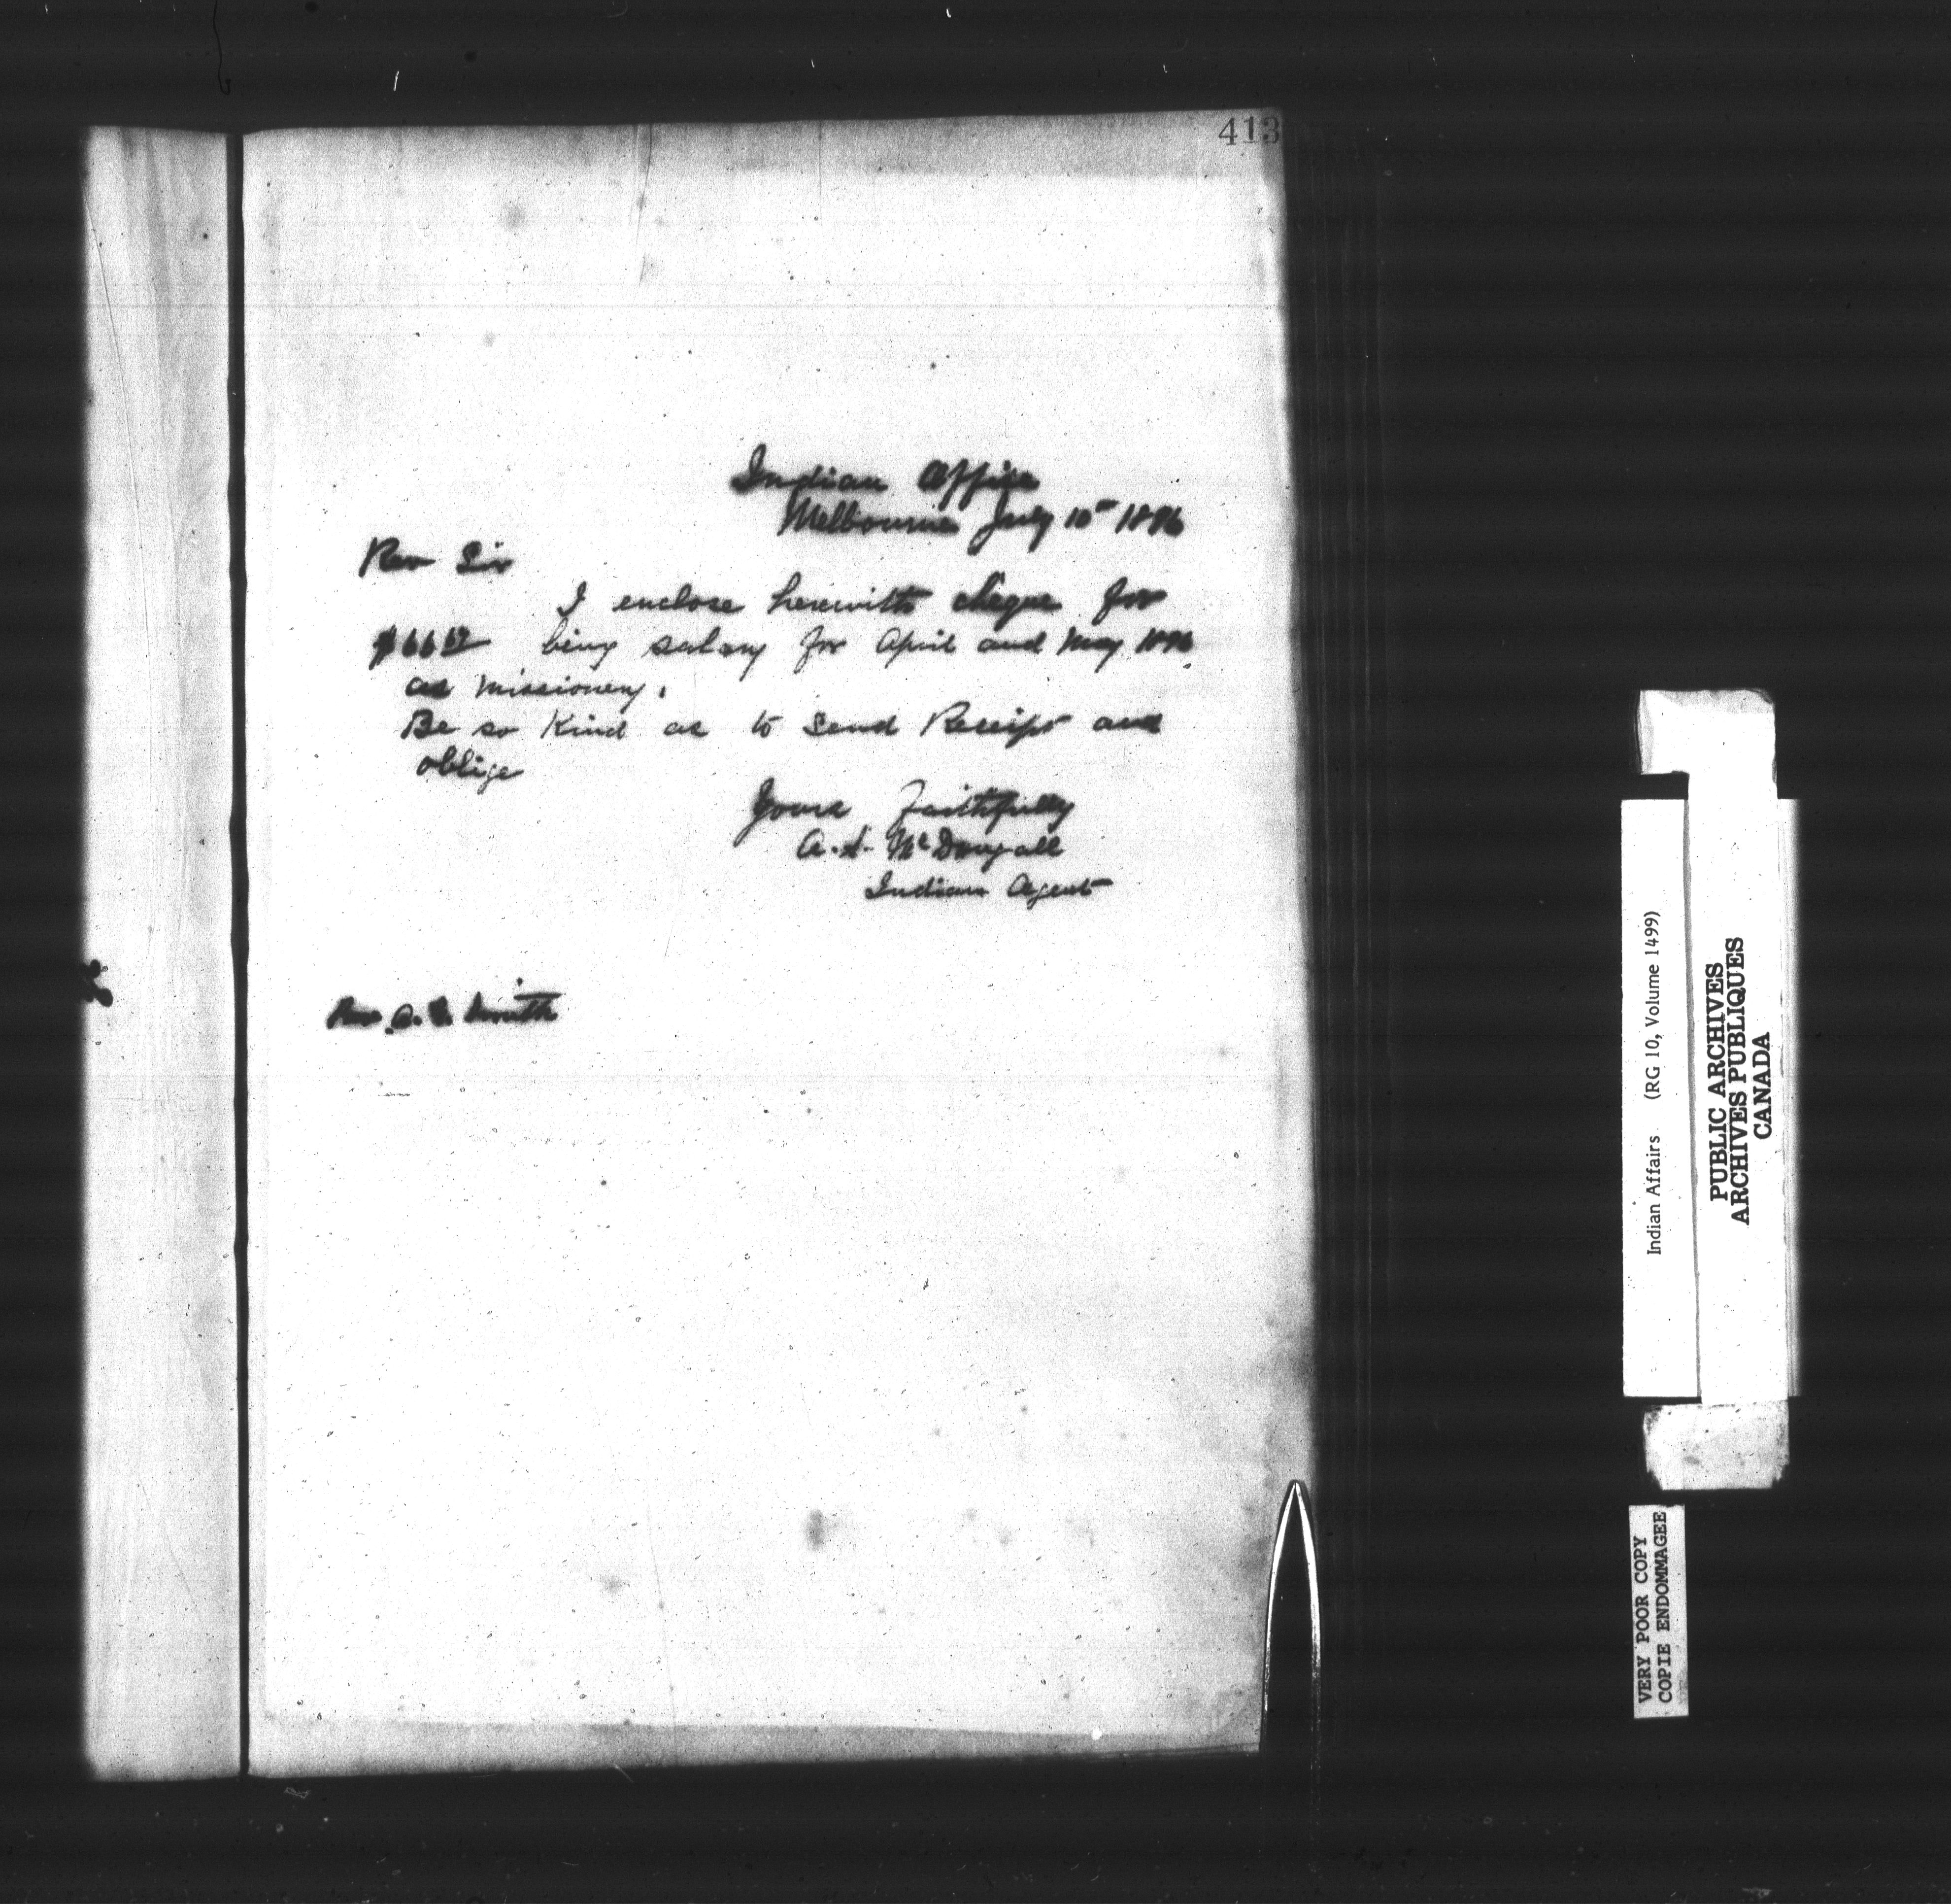 413
Indian Office
Melbourne July 10th 1896
Rev Sir
I enclose herewith cheque for
$66 67 being salary for April and May 1896
as missionery.
Be so Kind as to send Receipt and
oblige
Yours Faithfully
A. S. McDougall
Indian Agent
Rev A. Smith
Indian Affairs (RG 10, Volume 1499)
PUBLIC ARCHIVES
ARCHIVES PUBLIQUES
CANADA
VERY POOR COPY
COPIE ENDOMMAGEE